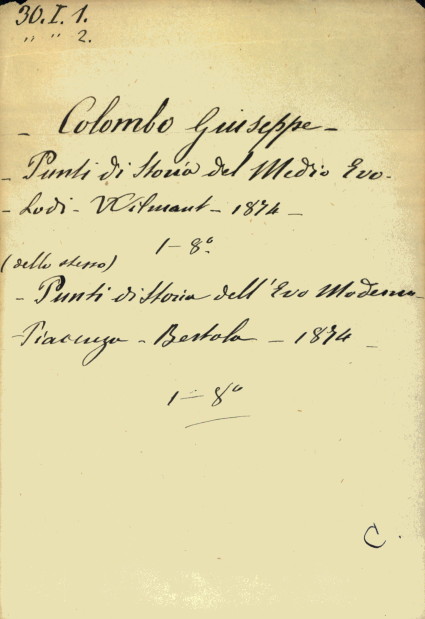 30.I.1.
" " 2.
- Colombo Giuseppe -
- Punti di Storia del Medio Evo -
- Lodi - Wilmant - 1874 -
1 - 8°
(dello stesso)
- Punti di Storia dell'Evo Moderno -
Piacenza - Bertola - 1874 -
1 - 8°
C.